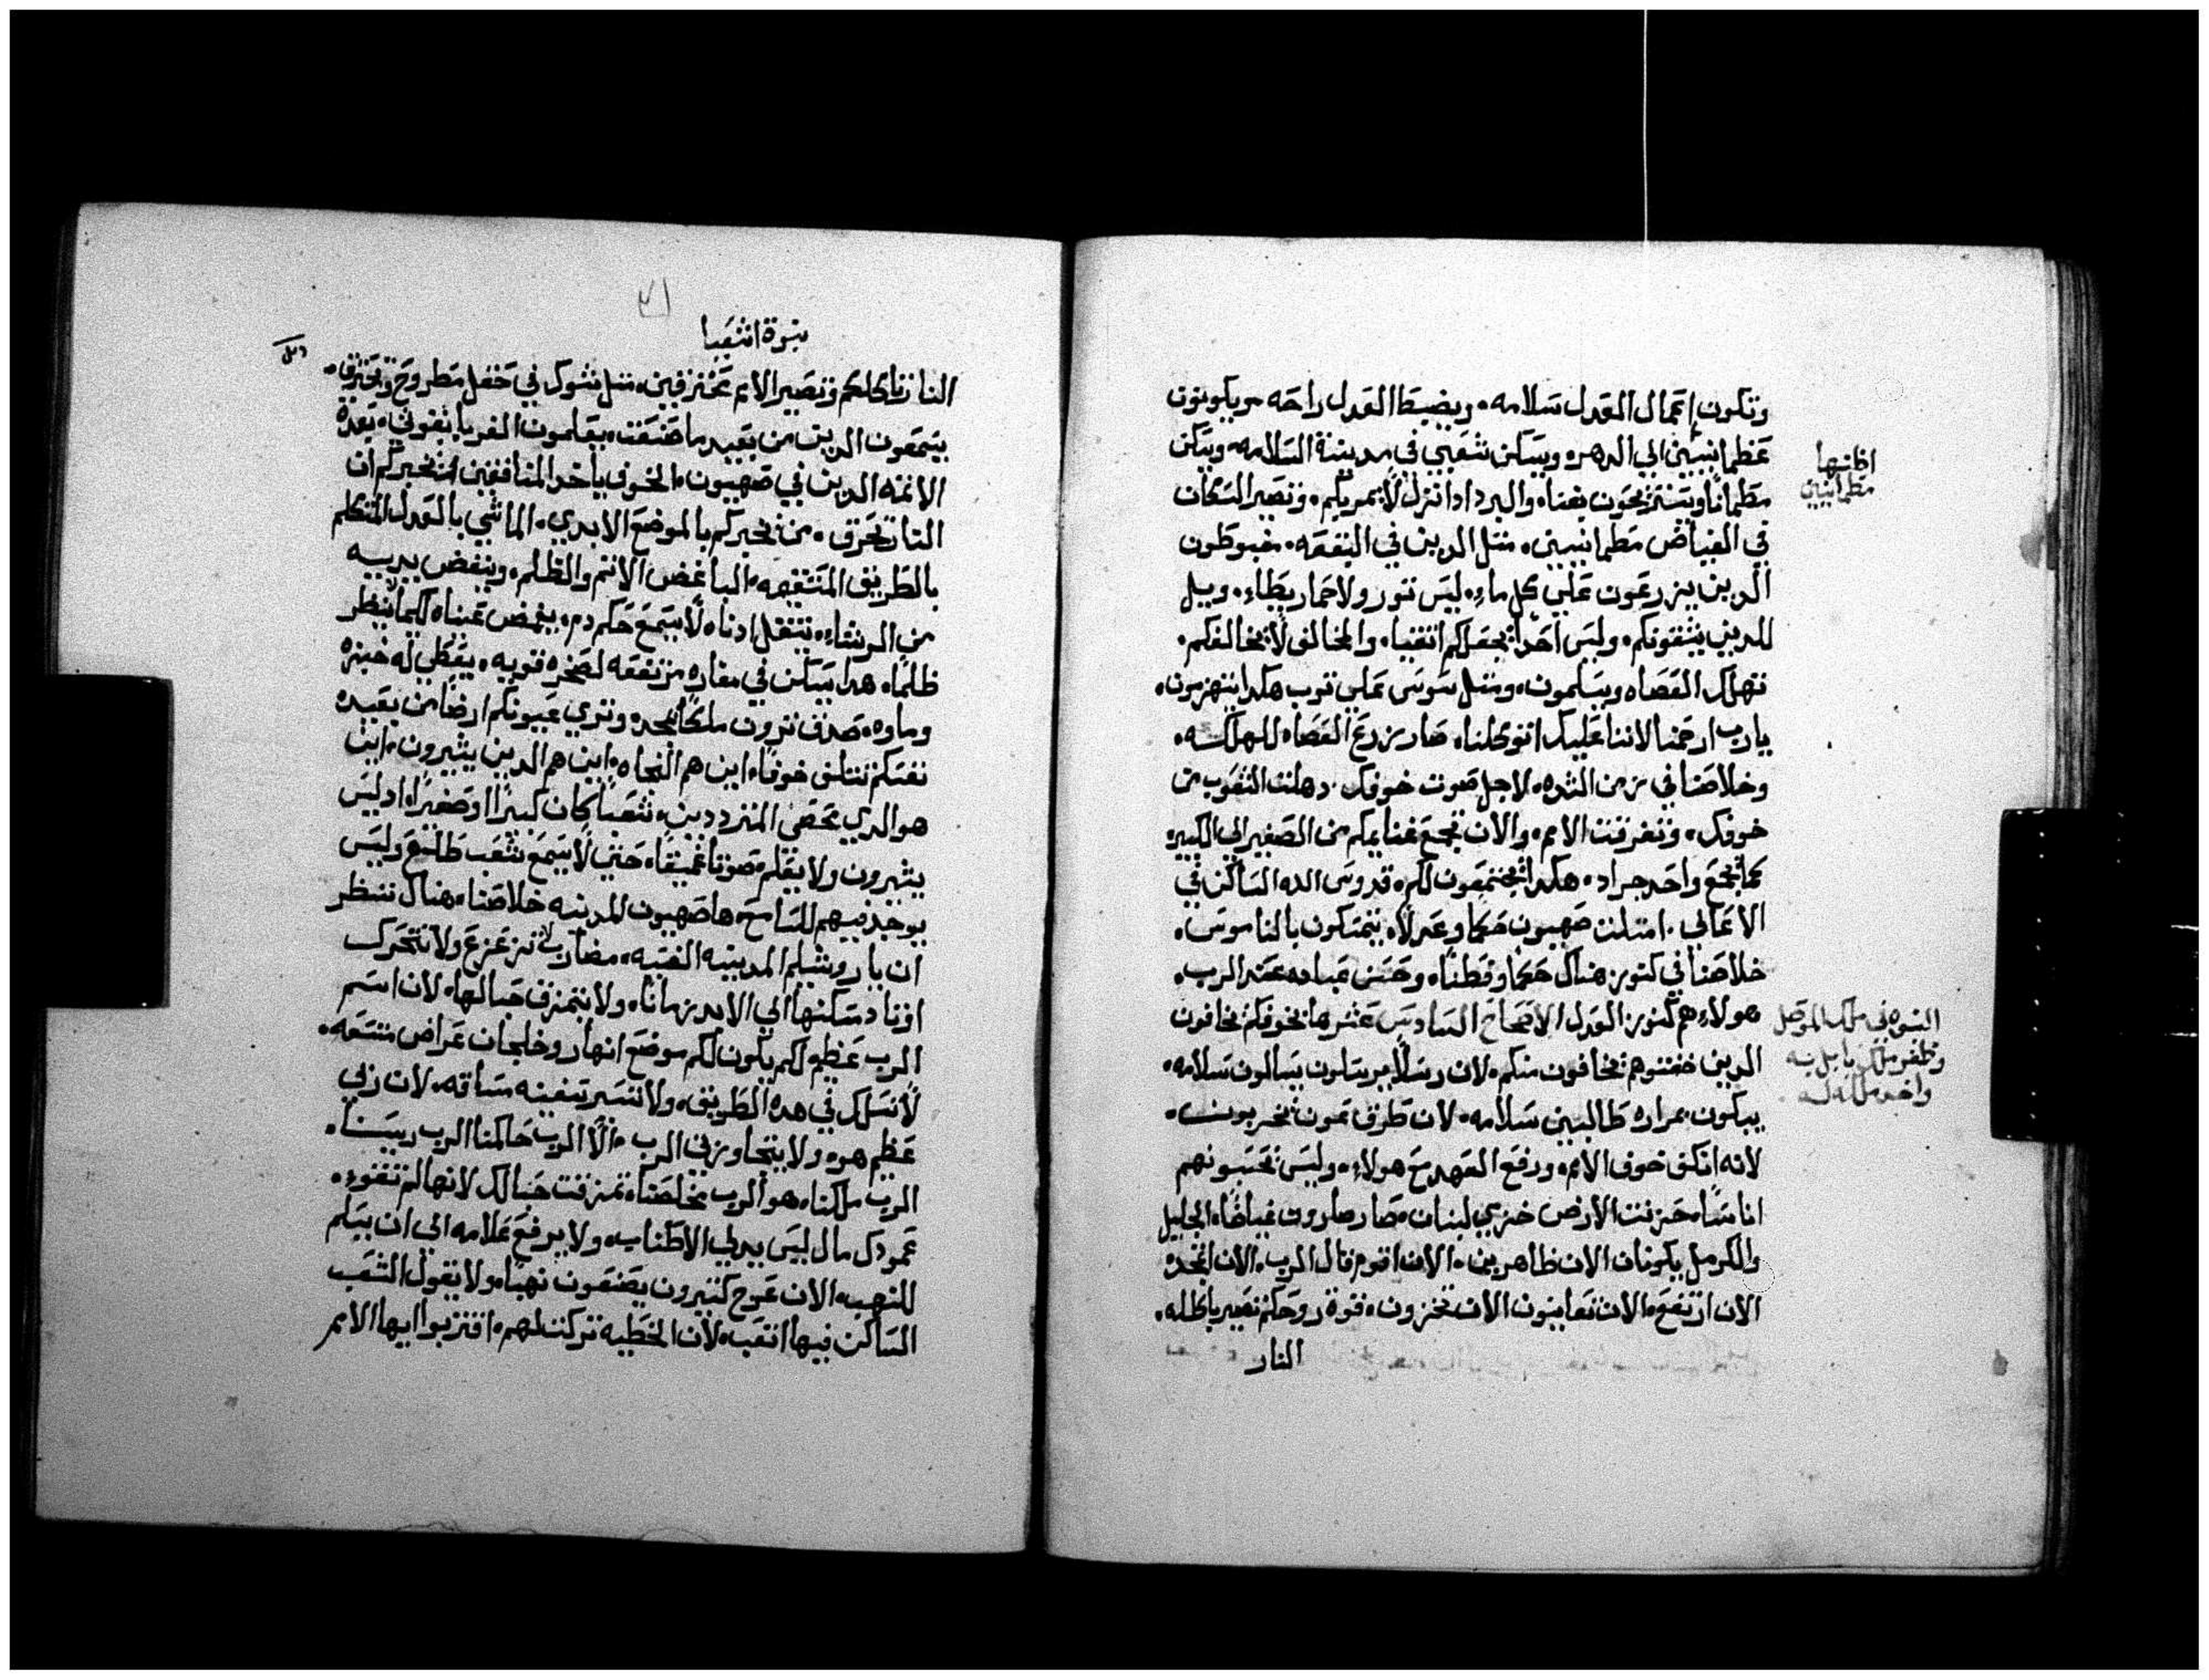 وتكون اعمال العدل سلامه. ويضبط العدل راحه. ويكونون
عظمانيين الي الدهر. ويسكن شعبي في مدينة السلامه. ويسكن
مطمانا ويستريحون بغنا. والبرد ادا نزل لا يمر بكم. وتصير السكان
في الغياض مطمانيين. متل الدين في البقعه. مغبوطون
الدين يزرعون علي كل ماء. ليس تور ولا حمار يطاء. ويل
للدين يشقونكم. وليس احدا يجعلكم اشقيا. والمخالف لا يخالفكم.
تهلك العصاه ويسلمون. ومتل سوس علي توب هكدا ينهزمون.
يارب ارحمنا لاننا عليك اتوكلنا. صار زرع العصاه للهلكه.
وخلاصنا في زمن الشده. لاجل صوت خوفك. دهلت الشعوب من
خوفك. وتفرقت الامم. والان تجمع غنايمكم من الصغير الي الكبير
كما يجمع واحد جراد. هكدا يجتمعون لكم. قدوس الله الساكن في
الاعالي. امتلت صهيون حكما وعدلا. يتمسكون بالناموس.
خلاصنا في كنوز هناك حكما وفطنا. وحسن عباده عند الرب.
هولاء هم كنوز العدل الاصحاح السادس عشر ها بخوفكم يخافون
الدين خفتوهم يخافون منكم. لان رسلا يرسلون يسالون سلامه.
يبكون بمراره طالبين سلامه. لان طرق تمون تخرب.
لانه انكف خوف الامم. ورفع العهد مع هولاء. وليس تحسبونهم
اناسا. حزنت الارض خزي لبنان. صار صارون غياضا. الجليل
والكرمل يكونان الان ظاهرين. الان اقوم قال الرب. الان اتمجد
الان ارتفع. الان تعاينون الان تخزون. قوة روحكم تصير باطله.
النار
اظانها
مطمانيين
النبوه في ملك الموصل
وظفر ملك بابل به
نبوة اشعيا
النار تاكلكم وتصير الامم محترقين. متل شوك في حقل مطروح ويحترق.
يسمعون الدين من بعيد ما صنعت. يعلمون القربا بقوتي. بعده
الاتمه الدين في صهيون. الخوف ياخد المنافقين من يخبركم ان
النار تحرق. من يخبركم بالموضع الابدي. الماشي بالعدل المتكلم
بالطريق المستقيمه. الباغض الاتم والظلم. وينفض يديه
من الرشاء. يتقل ادناه لا يسمع حكم دم. يغمض عيناه لكيما لا ينظر
ظلما. هدا يسكن في مغاره مرتفعه لصخره قويه. يعطي له خبزه
وماوه. صدق ترون ملكا بمجد. وتري عيونكم ارضا من بعيده
نفسكم تتلف خوفا. اين هم النحاه. اين هم الدين يشيرون. اين
هو الدي يحصي المترددين. شعبا كان كبيرا او صغيرا. اد ليس
يشيرون ولا يعلم صوتا عميقا. حتي لا يسمع شعب طالع وليس
يوجد فيهم للسامع. ها صهيون المدينه خلاصنا. هناك تنظر
ان ياروشليم المدينه الغنيه. مضارب لا تزعزع ولا تتحرك
اوتاد مسكنها الي الابد زمانا. ولا يتمزق حبالها. لان اسم
الرب عظيم لكم يكون لكم موضع انهار وخلجان عراض متسعه.
لا تسلك في هده الطريق. ولا تسير سفينه مساقه. لان زلي
عظيم هو. ولا يتجاوزني الرب. الا الرب حاكمنا الرب رييسنا.
الرب ملكنا. هو الرب يخلصنا. تمزقت حبالك لانها لم تتقوه.
عمودك مال ليس يدلي الاطناب. ولا يرفع علامه الي ان يسلم
للنهب. الان عوج كتيرون يصنعون نهبا. ولا يقول الشعب
الساكن فيها اتعب. لان الخطيه تركت لهم. اقتربوا ايها الامم